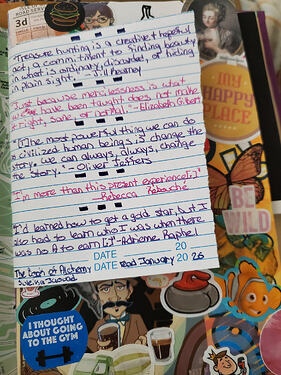 3d
Treasure hunting is a creative & hopeful
act, a commitment to finding beauty
in what is ordinary, discarded, or hiding
in plain sight." - Jill Kearney
Just because mercilessness is what
we have been taught does not make
it right, sane, or normal." -Elizabeth Gilbert
"[T]he most powerful thing we can do
as civilized human beings is change the
story. & we can always, always, change
the story." -Oliver Jeffers
I'm more than this present experience[.]"
-Rebecca
"I'd learned how to get a gold star, but I
also had to learn who I was when there
was no A to earn[.]"-Adrienne Raphel
DATE 20
The Book of Alchemy DATE Read January 20 26
Suleika Jaouad
I THOUGHT
ABOUT GOING
TO THE GYM
MY
HAPPY
PLACE
BE
WILD